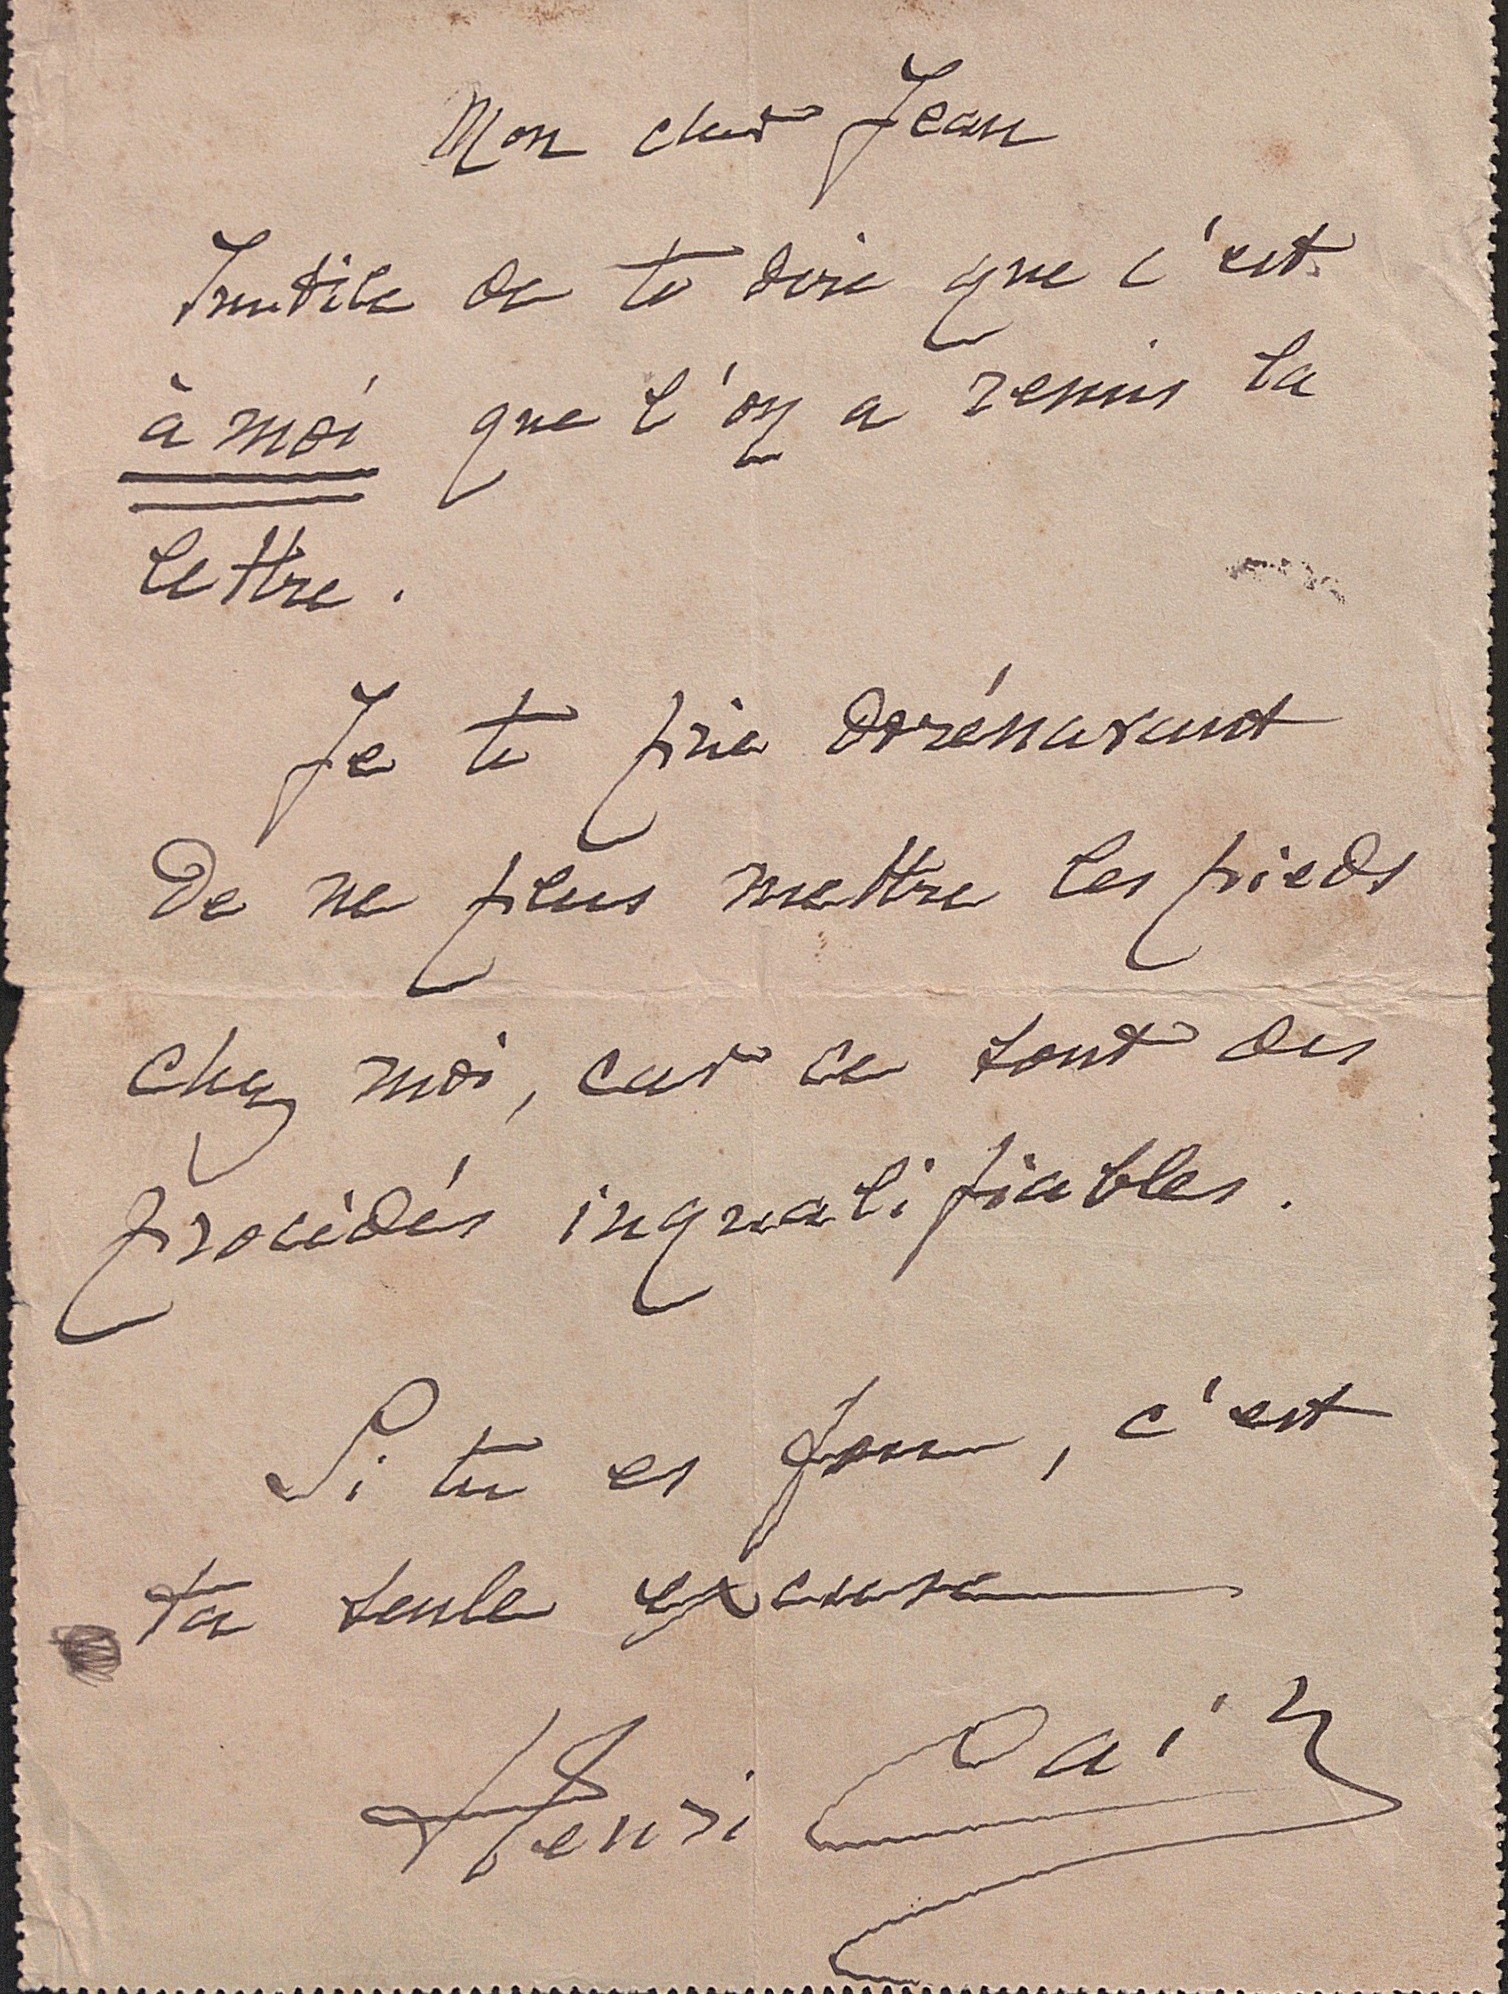 Mon cher Jean
Inutile de te dire que c'est
à moi que l'on a remis la
lettre.
Je te prie dorénavant
De ne plus mettre les pieds
chez moi, car ce sont des
procédés inqualifiables.
Si tu es fou, c'est
ta seule excuse
Henri